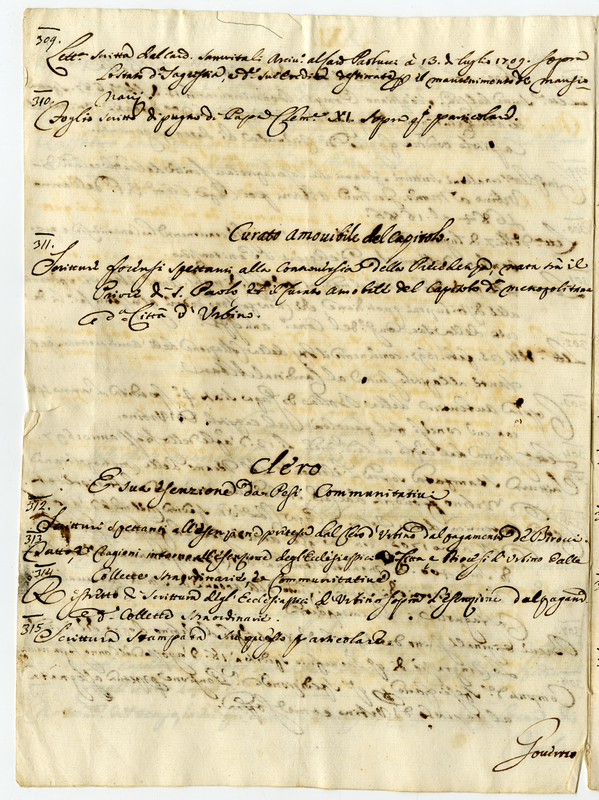 309.
Lett.ª scritta dal Card. Sanvitali Arciv.º al Card. Paolucci a 13. di luglio 1709. sopra
lo stato di Sagrestia, et sul credito destinato p il mantenimento de mansio-
narij.
310.
Foglio scritto di pugno di Papa Clem.e XI. sopra qº particolare.
311.
Curato amovibile del Capitolo
Scritture forensi spettanti alla Controversia della Precedenza, nata tra il
Priore di S. Paolo et il Curato amobile del Capitolo di metropolitana
e dª Città d'Urbino.
Clero
E sua esenzione da Pesi Communitativi
312.
Scritture spettanti all'esenzione pretesa dal Clero d'Urbino dal pagamento de Birocci.
313
Fatto, e Ragioni intorno all'esenzione degl'Ecclesiastici di Città e Diocesi d'Urbino dalle
Collette straordinarie, e Communitative
314
Ristretto di Scritture degl'Ecclesiastici d'Urbino sopra l'esenzione dal pagam.º
di Collette straordinarie.
315
Scritture stampate su questo particolare.
Governo